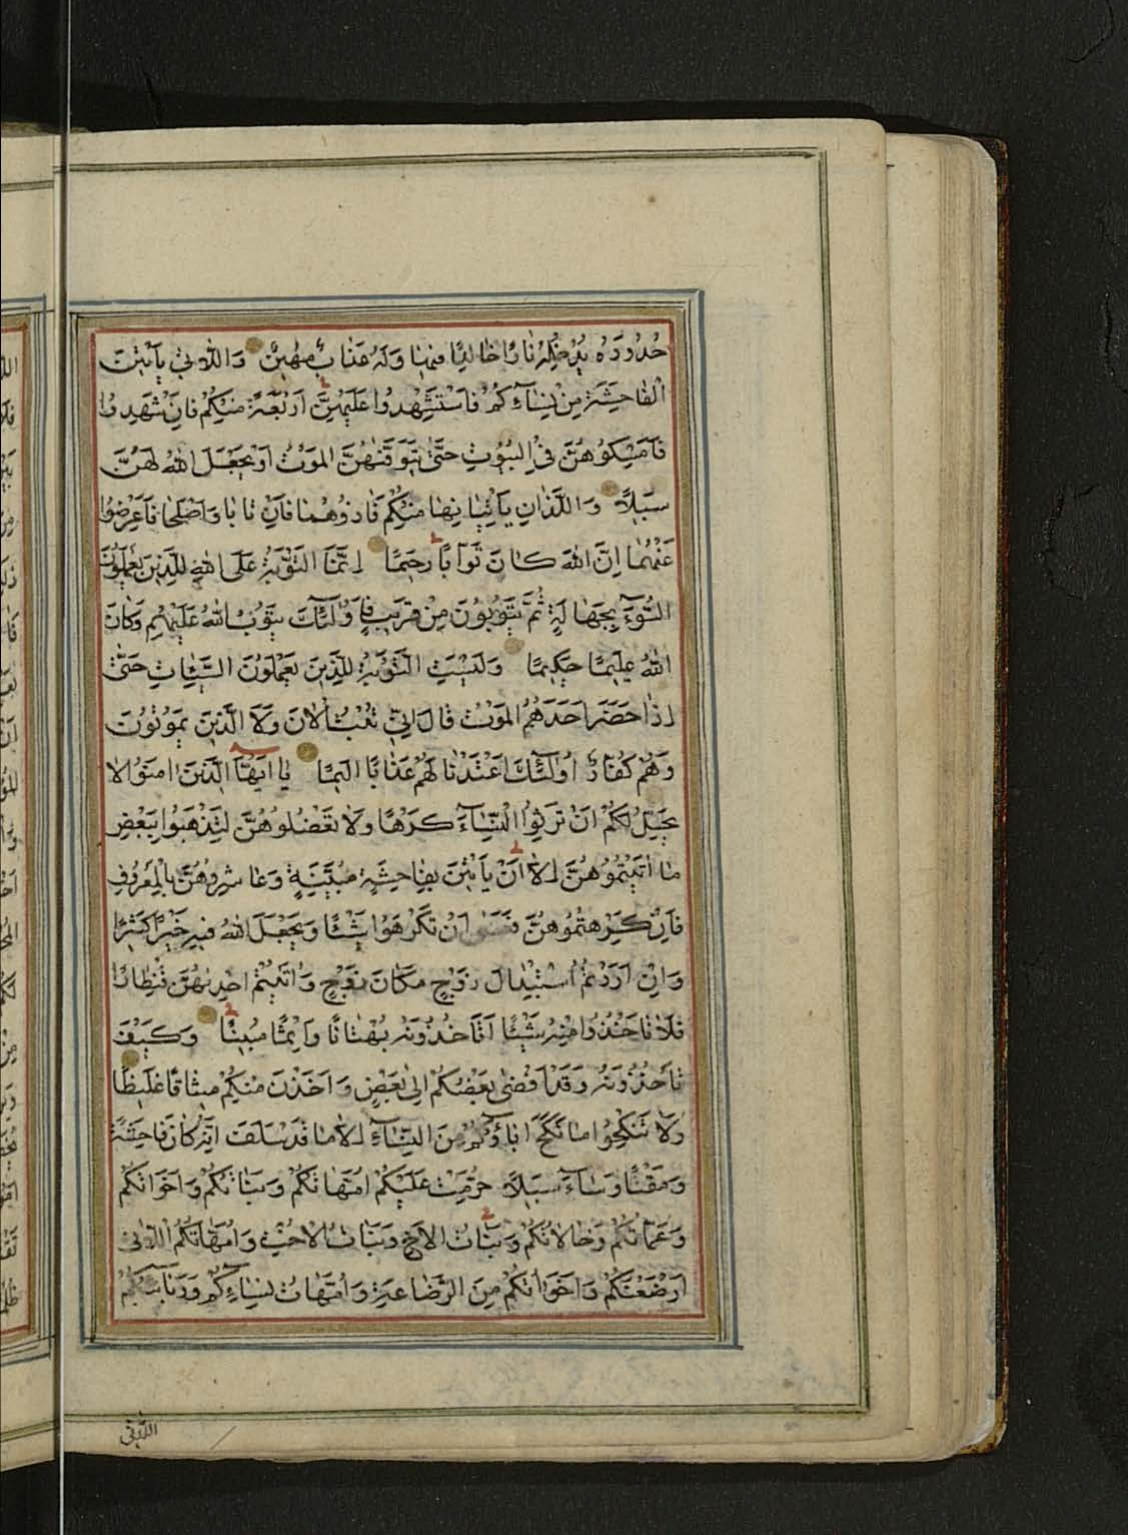 حُدُودَهُ يُدْخِلْهُ نَارًا خَالِدًا فِيهَا وَلَهُ عَذَابٌ مُهِينٌ وَاللَّاتِي يَأْتِينَ
الْفَاحِشَةَ مِنْ نِسَاءِكُمْ فَاسْتَشْهِدُوا عَلَيْهِنَّ أَرْبَعَةً مِنْكُمْ فَإِنْ شَهِدُوا
فَأَمْسِكُوهُنَّ فِي الْبُيُوتِ حَتَّى يَتَوَفَّيٰهُنَّ الْمَوْتُ أَوْ يَجْعَلَ اللهُ لَهُنَّ
سَبِيلًا وَاللَّذَانِ يَأْتِيَانِهَا مِنْكُمْ فَآذُوهُمَا فَإِنْ تَابَا وَأَصْلَحَا فَأَعْرِضُوا
عَنْهُمَا إِنَّ اللهَ كَانَ تَوَّابًا رَحِيمًا إِنَّمَا التَّوْبَةُ عَلَى اللهِ لِلَّذِينَ يَعْمَلُونَ
السُّوءَ بِجَهَالَةٍ ثُمَّ يَتُوبُونَ مِنْ قَرِيبٍ فَأُولَئِكَ يَتُوبُ اللهُ عَلَيْهِمْ وَكَانَ
اللهُ عَلِيمًا حَكِيمًا وَلَيْسَتِ التَّوْبَةُ لِلَّذِينَ يَعْمَلُونَ السَّيِّئَاتِ حَتَّى
إِذَا حَضَرَ أَحَدَهُمُ الْمَوْتُ قَالَ إِنِّي تُبْتُ الْآنَ وَلَا الَّذِينَ يَمُوتُونَ
وَهُمْ كُفَّارٌ أُولَئِكَ أَعْتَدْنَا لَهُمْ عَذَابًا أَلِيمًا يَا أَيُّهَا الَّذِينَ آمَنُوا لَا
يَحِلُّ لَكُمْ أَنْ تَرِثُوا النِّسَاءَ كَرْهًا وَلَا تَعْضُلُوهُنَّ لِتَذْهَبُوا بِبَعْضِ
مَا آتَيْتُمُوهُنَّ إِلَّا أَنْ يَأْتِينَ بِفَاحِشَةٍ مُبَيِّنَةٍ وَعَاشِرُوهُنَّ بِالْمَعْرُوفِ
فَإِنْ كَرِهْتُمُوهُنَّ فَعَسَى أَنْ تَكْرَهُوا شَيْئًا وَيَجْعَلَ اللهُ فِيهِ خَيْرًا كَثِيرًا
وَإِنْ أَرَدْتُمُ اسْتِبْدَالَ زَوْجٍ مَكَانَ زَوْجٍ وَآتَيْتُمْ إِحْدَيٰهُنَّ قِنْطَارًا
فَلَا تَأْخُذُوا مِنْهُ شَيْئًا أَتَأْخُذُونَهُ بُهْتَانًا وَإِثْمًا مُبِينًا وَكَيْفَ
تَأْخُذُونَهُ وَقَدْ أَفْضَى بَعْضُكُمْ إِلَى بَعْضٍ وَأَخَذْنَ مِنْكُمْ مِيثَاقًا غَلِيظًا
وَلَا تَنْكِحُوا مَا نَكَحَ آبَاؤُكُمْ مِنَ النِّسَاءِ إِلَّا مَا قَدْ سَلَفَ إِنَّهُ كَانَ فَاحِشَةً
وَمَقْتًا وَسَاءَ سَبِيلًا حُرِّمَتْ عَلَيْكُمْ أُمَّهَاتُكُمْ وَبَنَاتُكُمْ وَأَخَوَاتُكُمْ
وَعَمَّاتُكُمْ وَخَالَاتُكُمْ وَبَنَاتُ الْأَخِ وَبَنَاتُ الْأُخْتِ وَأُمَّهَاتُكُمُ اللَّاتِي
أَرْضَعْنَكُمْ وَأَخَوَاتُكُمْ مِنَ الرَّضَاعَةِ وَأُمَّهَاتُ نِسَاءِكُمْ وَرَبَائِبُكُمُ
اللَّاتِي